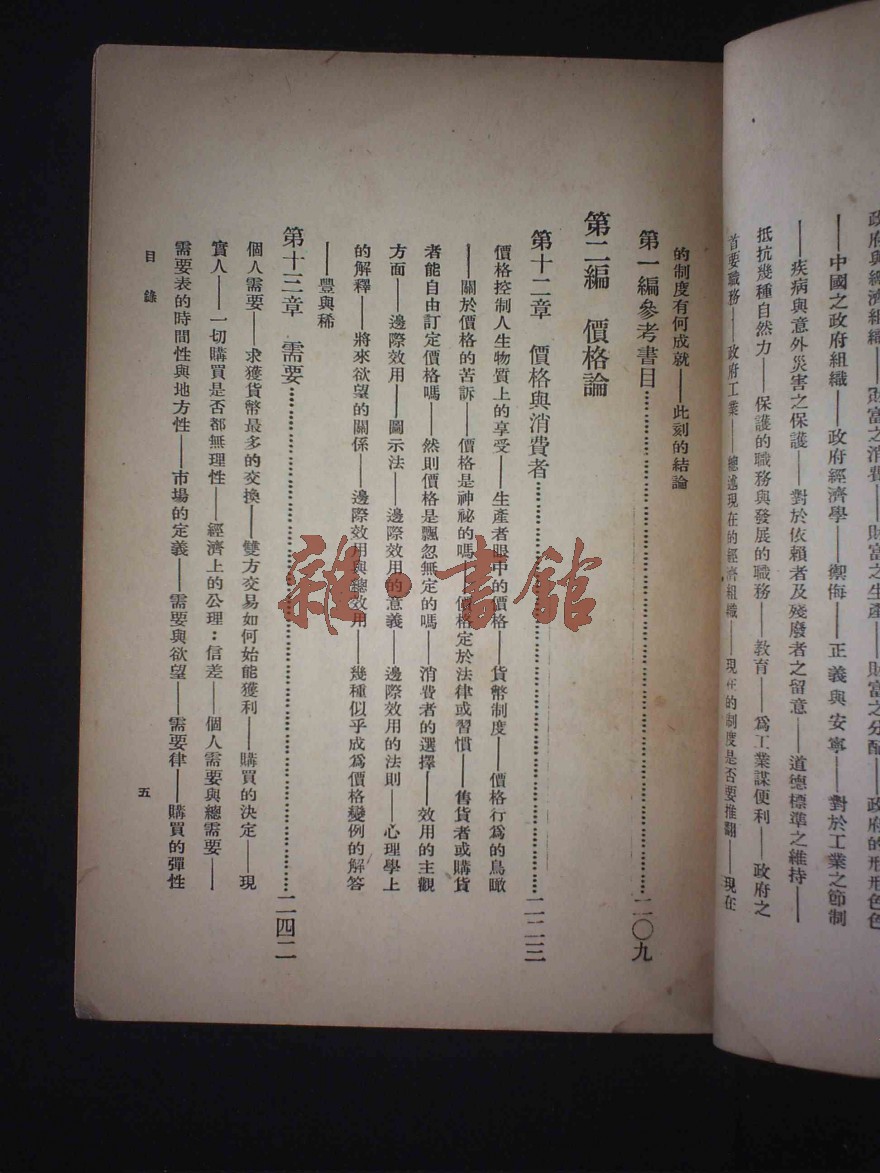 政府與經濟組織——財富之消費——財富之生產——財富之分配——政府的形形色色
——中國之政府組織——政府經濟學——禦侮——正義與安寧——對於工業之節制
——疾病與意外災害之保護——對於依賴者及殘廢者之留意——道德標準之維持——
抵抗幾種自然力——保護的職務與發展的職務——教育——爲工業謀便利——政府之
首要職務——政府工業——總述現在的經濟組織——現在的制度是否要推翻——現在
的制度有何成就——此刻的結論
第一編參考書目……二〇九
第二編 價格論
第十二章 價格與消費者……二二三
價格控制人生物質上的享受——生產者眼中的價格——貨幣制度——價格行爲的鳥瞰
——關於價格的苦訴——價格是神祕的嗎——價格定於法律或習慣——售貨者或購貨
者能自由訂定價格嗎——然則價格是飄忽無定的嗎——消費者的選擇——效用的主觀
方面——邊際效用——圖示法——邊際效用的意義——邊際效用的法則——心理學上
的解釋——將來欲望的關係——邊際效用與總效用——幾種似乎成爲價格變例的解答
——豐與稀
第十三章 需要……二四二
個人需要——求獲貨幣最多的交換——雙方交易如何始能獲利——購買的決定——現
實人——一切購買是否都無理性——經濟上的公理：信差——個人需要與總需要——
需要表的時間性與地方性——市場的定義——需要與欲望——需要律——購買的彈性
目錄
五
雜·書館